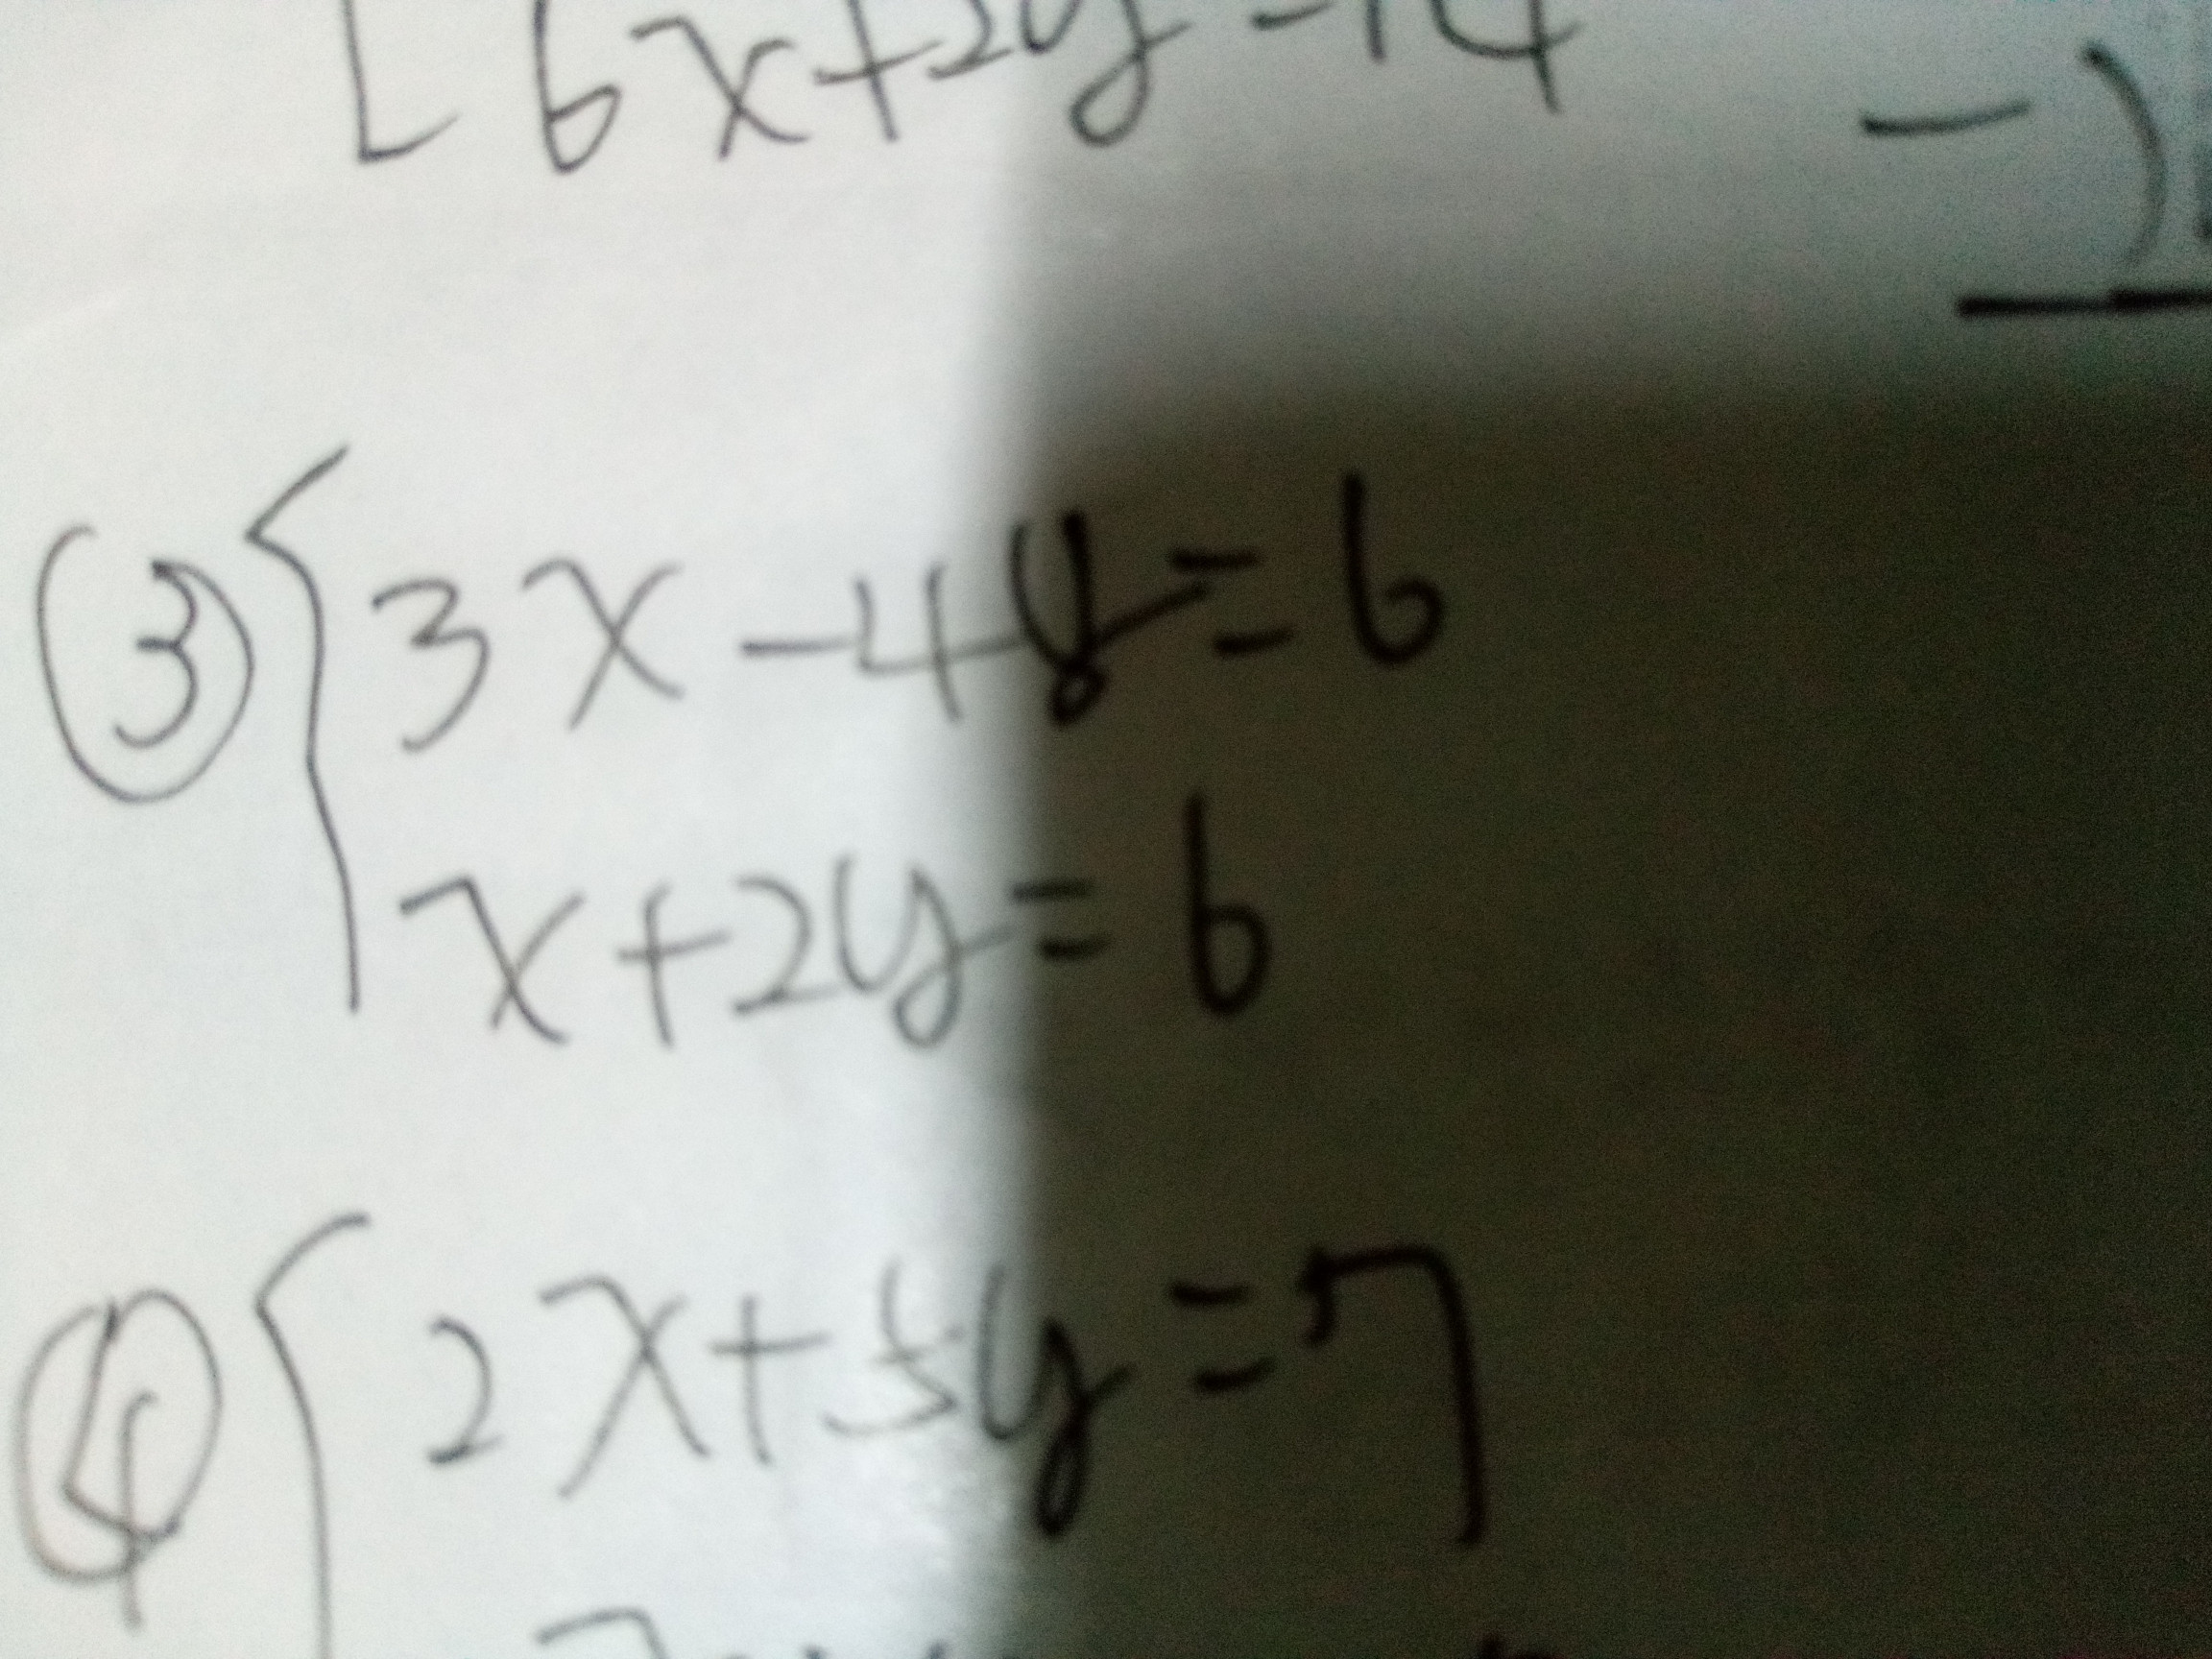 6x+2y=14
-)
③ 3x-4y=6
x+2y=6
④ 2x+5y=7